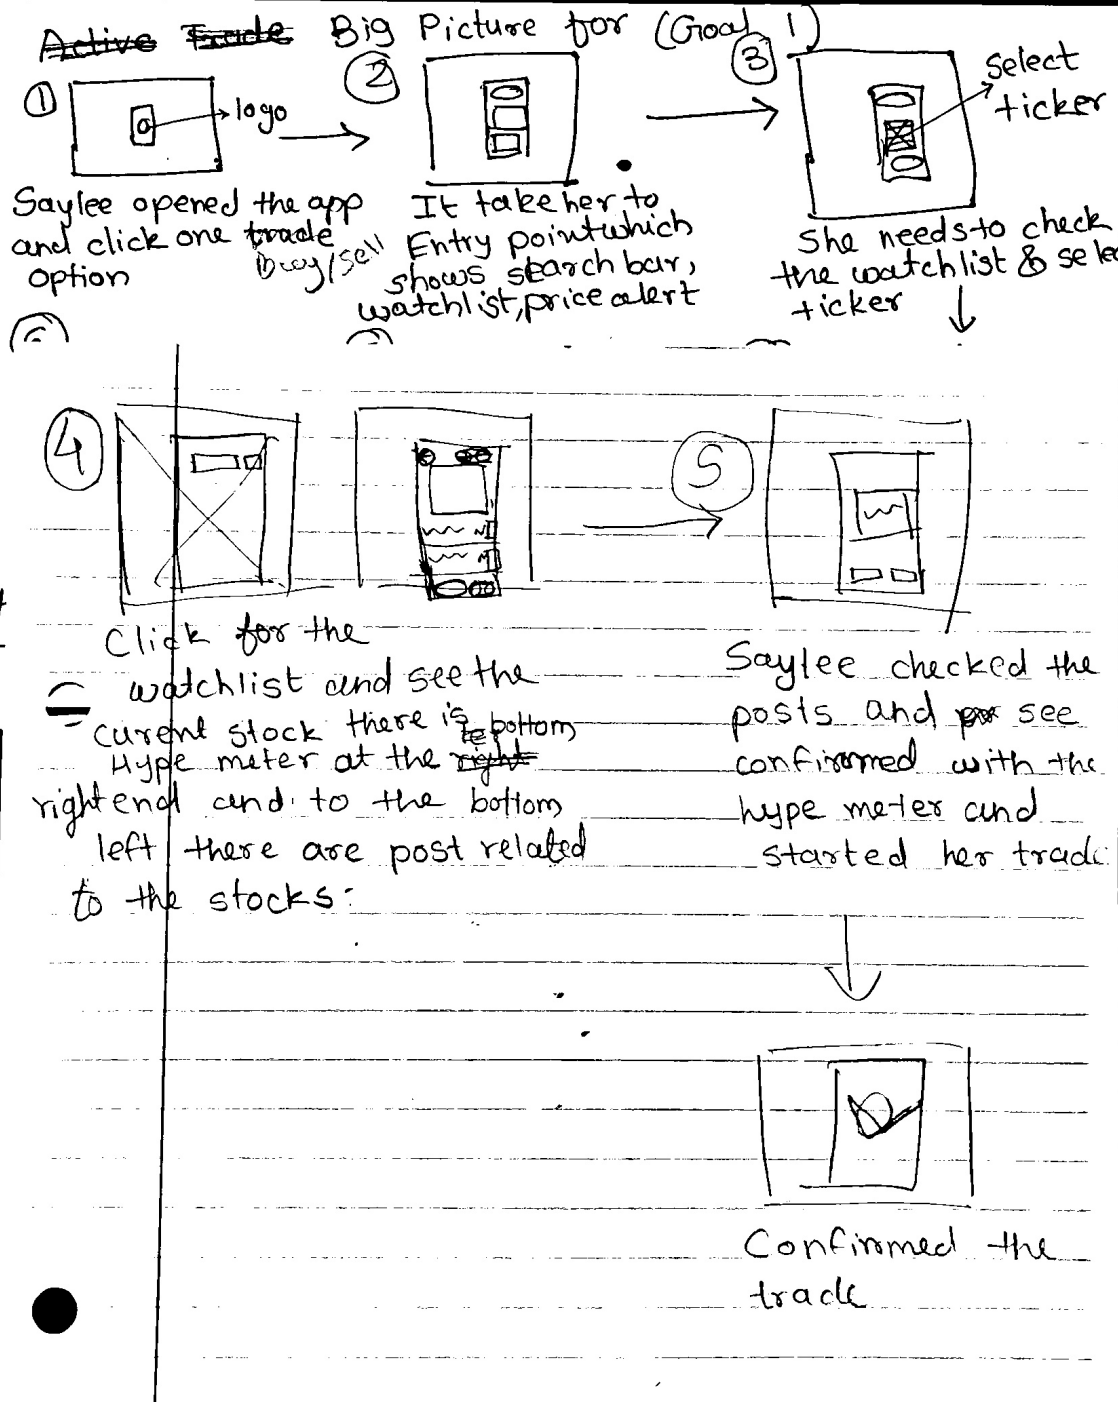 Active Trade Big Picture for (Goal 1)
1
logo
Saylee opened the app
and click one trade
Buy/sell
option
2
It take her to
Entry point which
shows search bar,
watchlist, price alert
3
select
ticker
She needs to check
the watchlist & selec
ticker
4
Click for the
watchlist and see the
curent stock there is
bottom
Hype meter at the right
right end and to the bottom
left there are post related
to the stocks.
5
Saylee checked the
posts and see
confirmed with the
hype meter and
started her trade
Confirmed the
trade